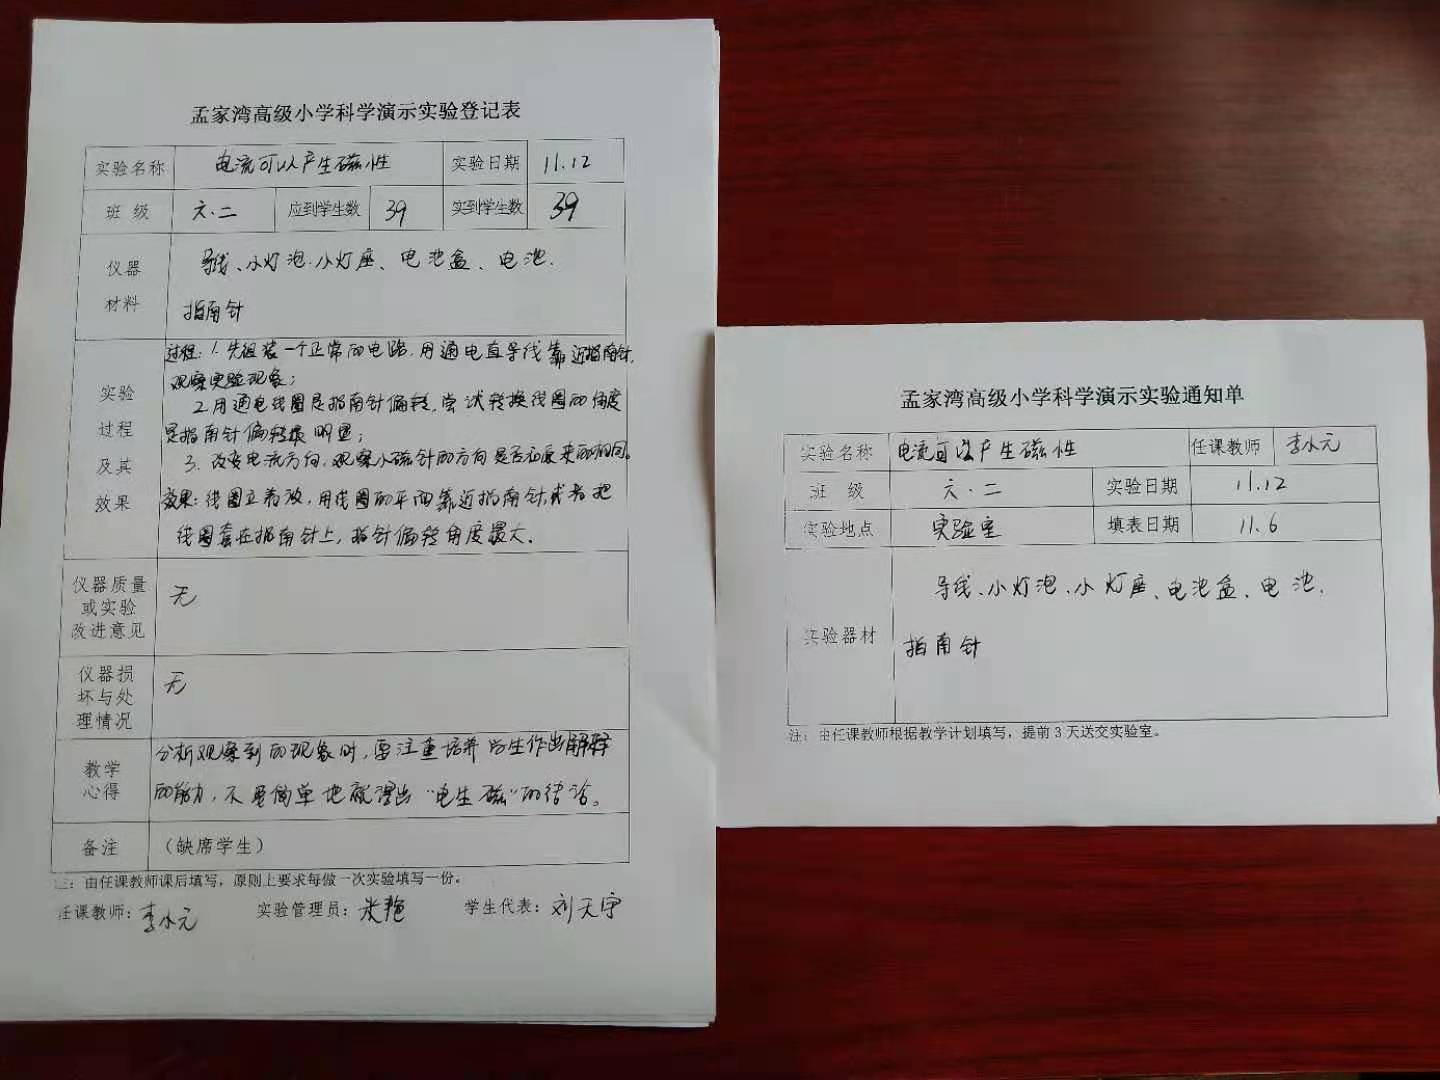 孟家湾高级小学科学演示实验登记表
实验名称 电流可以产生磁性 实验日期 11.12
班 级 六.二 应到学生数 39 实到学生数 39
仪器 导线、小灯泡.小灯座、电池盒、电池.
材料 指南针
过程:1.先组装一个正常的电路,用通电直导线靠近指南针,
观察实验现象;
实验 2.用通电线圈是指南针偏转,尝试转换线圈的角度
过程 是指南针偏转最明显;
及其 3.改变电流方向,观察小磁针的方向是否和原来的相同。
效果 效果:线圈立着放,用线圈的平面靠近指南针或者把
线圈套在指南针上,指针偏转角度最大.
仪器质量
或实验 无
改进意见
仪器损
坏与处 无
理情况
教学 分析观察到的现象时,要注重培养学生作出解释
心得 的能力,不要简单地就得出“电生磁”的结论。
备注 (缺席学生)
:由任课教师课后填写,原则上要求每做一次实验填写一份。
任课教师:李水元 实验管理员:米艳 学生代表:刘天宇
孟家湾高级小学科学演示实验通知单
实验名称 电流可以产生磁性 任课教师 李水元
班 级 六.二 实验日期 11.12
实验地点 实验室 填表日期 11.6
导线、小灯泡、小灯座、电池盒、电池.
实验器材 指南针
注:由任课教师根据教学计划填写,提前3天送交实验室。